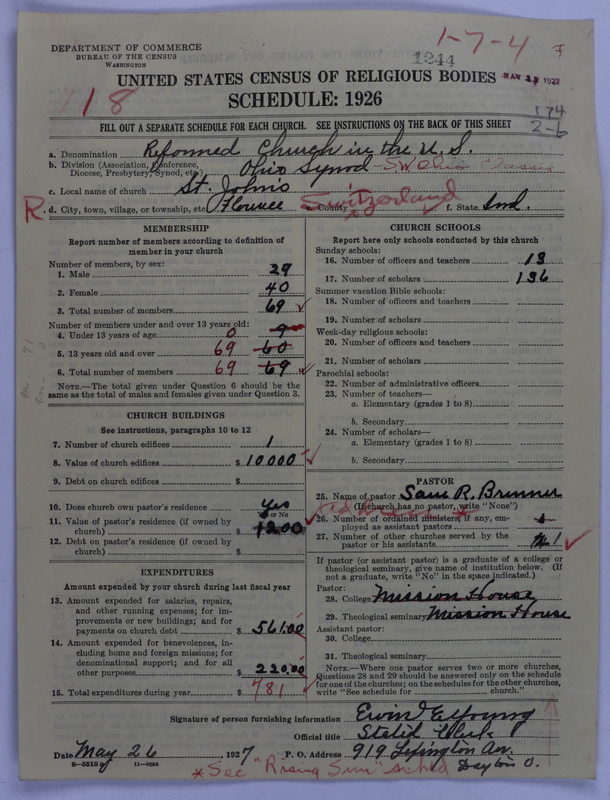 1-7-4
DEPARTMENT OF COMMERCE
BUREAU OF THE CENSUS
WASHINGTON
1244
UNITED STATES CENSUS OF RELIGIOUS BODIES
118
SCHEDULE: 1926
174
2-6
FILL OUT A SEPARATE SCHEDULE FOR EACH CHURCH. SEE INSTRUCTIONS ON THE BACK OF THIS SHEET
a. Denomination Reformed Church in the U.S.
b. Division (Association, Conference, Diocese, Presbytery, Synod, etc.) Ohio Synod - SW Ohio Classis
c. Local name of church St. John's
R. d. City, town, village, or township, etc. Florence e. County Switzerland f. State Ind.
MEMBERSHIP
Report number of members according to definition of member in your church
Number of members, by sex:
1. Male 29
2. Female 40
3. Total number of members 69
Number of members under and over 13 years old:
4. Under 13 years of age 0 9
5. 13 years old and over 69 60
6. Total number of members 69 69
NOTE.—The total given under Question 6 should be the same as the total of males and females given under Question 3.
CHURCH BUILDINGS
See instructions, paragraphs 10 to 12
7. Number of church edifices 1
8. Value of church edifices $ 10000
9. Debt on church edifices $
10. Does church own pastor's residence Yes
Yes or No
11. Value of pastor's residence (if owned by church) $ 1200
12. Debt on pastor's residence (if owned by church) $
EXPENDITURES
Amount expended by your church during last fiscal year
13. Amount expended for salaries, repairs, and other running expenses; for improvements or new buildings; and for payments on church debt $ 561.00
14. Amount expended for benevolences, including home and foreign missions; for denominational support; and for all other purposes $ 220.00
15. Total expenditures during year $ 781
CHURCH SCHOOLS
Report here only schools conducted by this church
Sunday schools:
16. Number of officers and teachers 13
17. Number of scholars 136
Summer vacation Bible schools:
18. Number of officers and teachers
19. Number of scholars
Week-day religious schools:
20. Number of officers and teachers
21. Number of scholars
Parochial schools:
22. Number of administrative officers
23. Number of teachers—
a. Elementary (grades 1 to 8)
b. Secondary
24. Number of scholars—
a. Elementary (grades 1 to 8)
b. Secondary
PASTOR
25. Name of pastor Sam R. Brunner
(If church has no pastor, write "None")
26. Number of ordained ministers, if any, employed as assistant pastors
27. Number of other churches served by the pastor or his assistants 1
If pastor (or assistant pastor) is a graduate of a college or theological seminary, give name of institution below. (If not a graduate, write "No" in the space indicated.)
Pastor:
28. College Mission House
29. Theological seminary Mission House
Assistant pastor:
30. College
31. Theological seminary
NOTE.—Where one pastor serves two or more churches, Questions 28 and 29 should be answered only on the schedule for one of the churches; on the schedules for the other churches, write "See schedule for church."
Signature of person furnishing information Erwin E Young
Official title Stated Clerk
Date May 26 1927 P. O. Address 919 Lexington Av.
Dayton O.
8-5518a 11-9054
*See "Rising Sun" sched